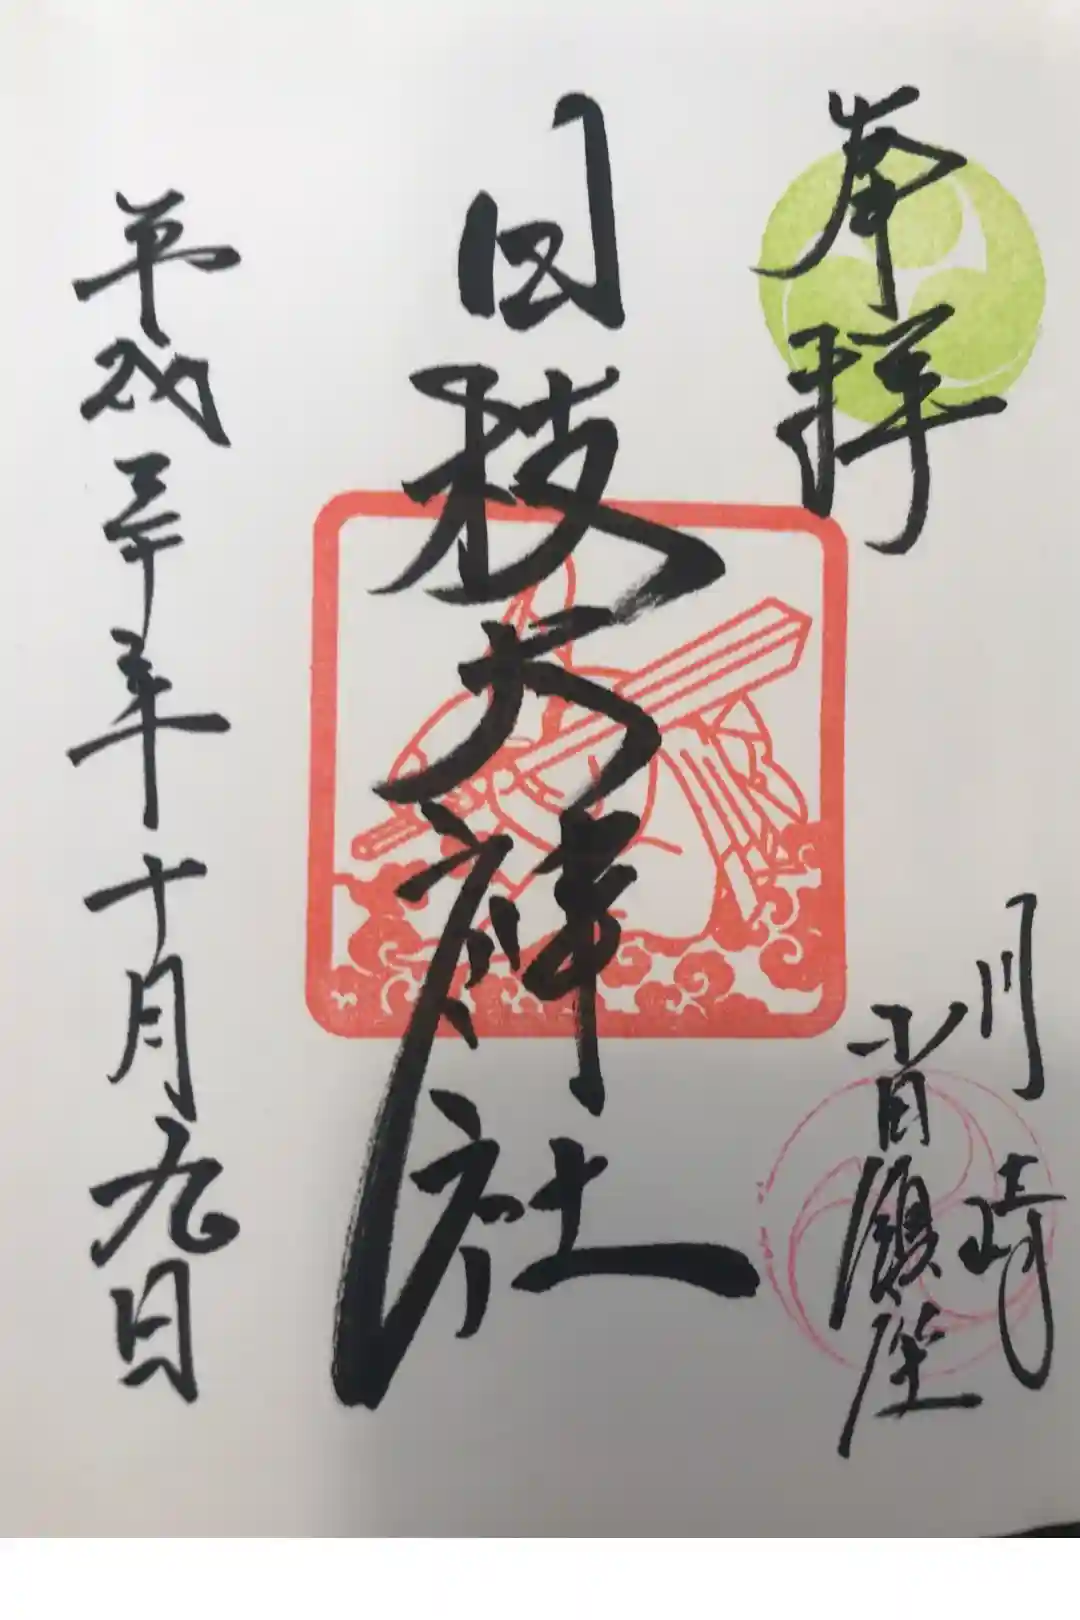 奉拝
川崎
鎮座
日枝大神社
平成三十年十月九日